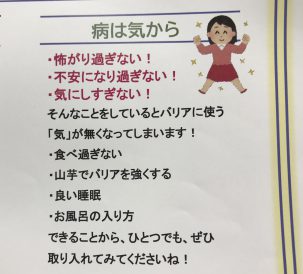 病は気から
・怖がり過ぎない！
・不安になり過ぎない！
・気にしすぎない！
そんなことをしているとバリアに使う
「気」が無くなってしまいます！
・食べ過ぎない
・山芋でバリアを強くする
・良い睡眠
・お風呂の入り方
できることから、ひとつでも、ぜひ
取り入れてみてくださいね！